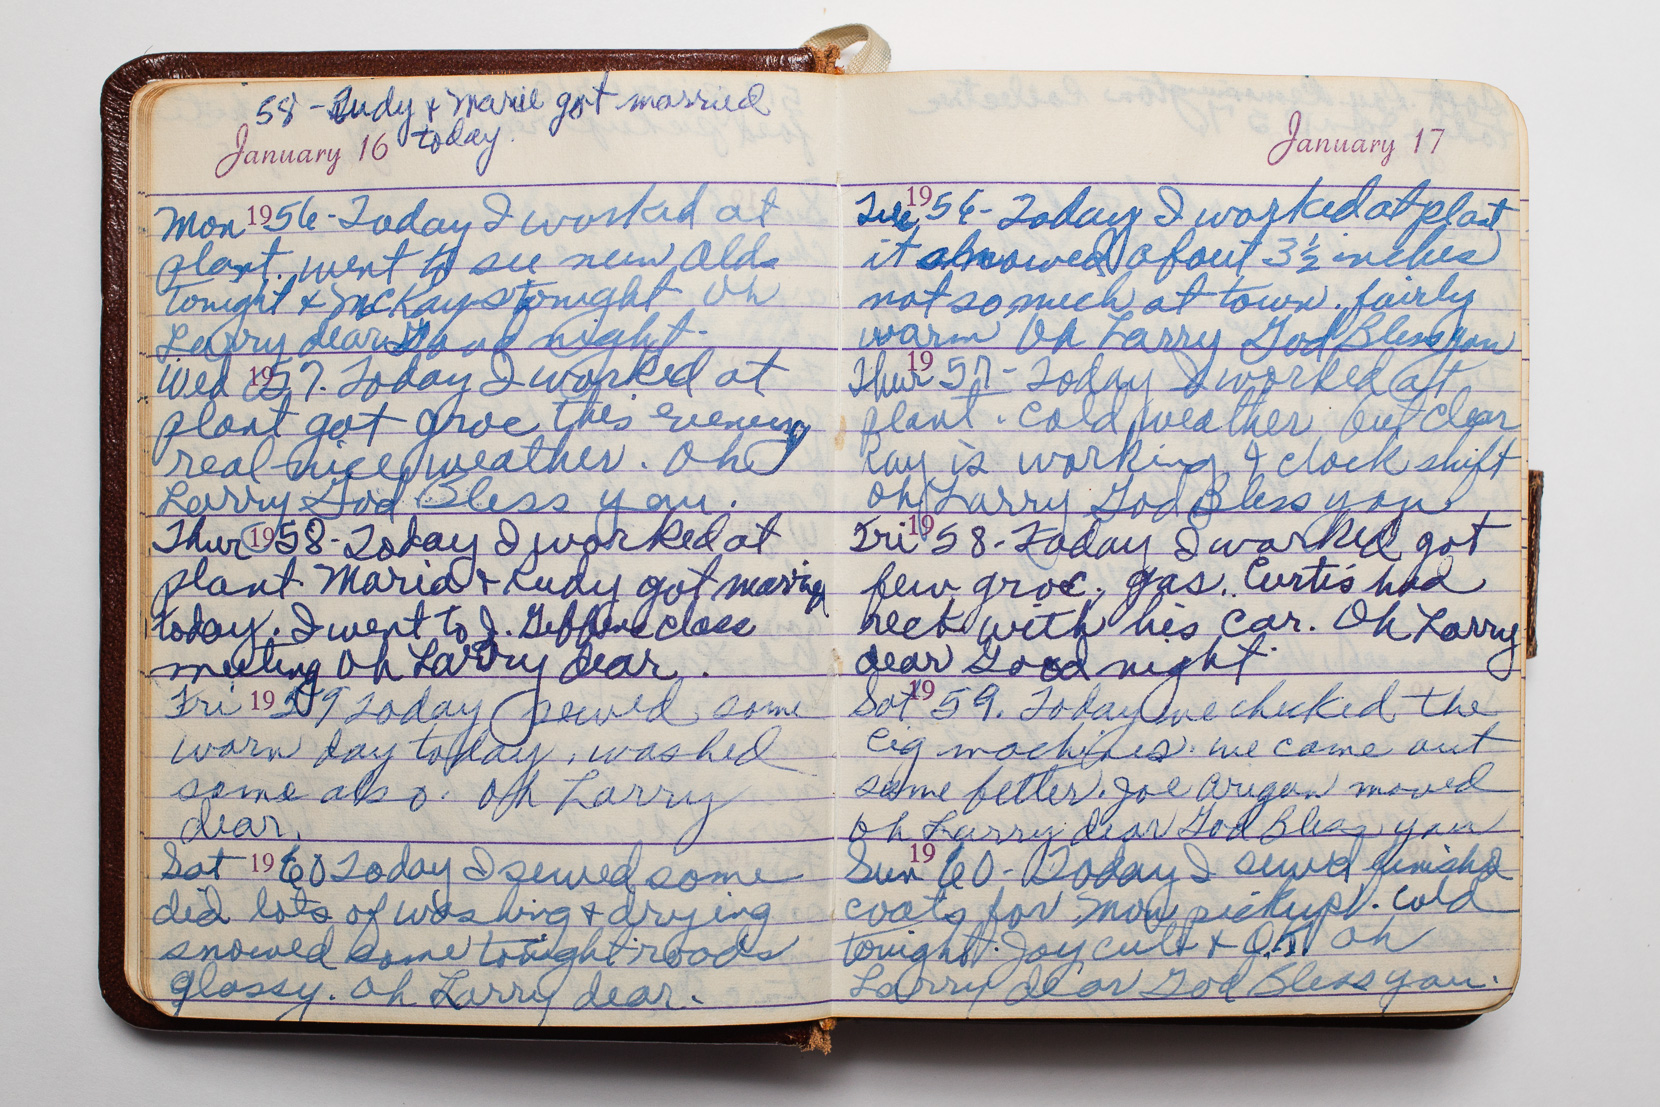 58 - Rudy & Marie got married
today.
January 16
Mon 1956 - Today I worked at
plant. went to see new Olds
tonight & McKays tonight Oh
Larry dear Good night.
Wed 1957. Today I worked at
plant got groc this evening
real nice weather. Oh
Larry God Bless you.
Thur 1958 - Today I worked at
plant. Maria & Rudy got married
today. I went to J. class
meeting Oh Larry dear.
Fri 1959 Today I sewed some
warm day today, washed
some also. Oh Larry
dear.
Sat 1960 Today I sewed some
did lots of washing & drying
snowed some tonight roads
glassy. Oh Larry dear.
January 17
Tue 1956 - Today I worked at plant
it snowed about 3½ inches
not so much at town. fairly
warm Oh Larry God Bless you
Thur 1957 - Today I worked at
plant. cold weather but clear
Kay is working 4 clock shift
Oh Larry God Bless you.
Fri 1958 - Today I worked got
few groc. gas. Curtis had
reck with his car. Oh Larry
dear Good night.
Sat 1959. Today we checked the
cig machines. we came out
some better. Joe moved
Oh Larry dear God Bless you
Sun 1960 - Today I sewed finishd
coats for Mon pickup. Cold
tonight. Joy cult & Oh
Larry dear God Bless you.